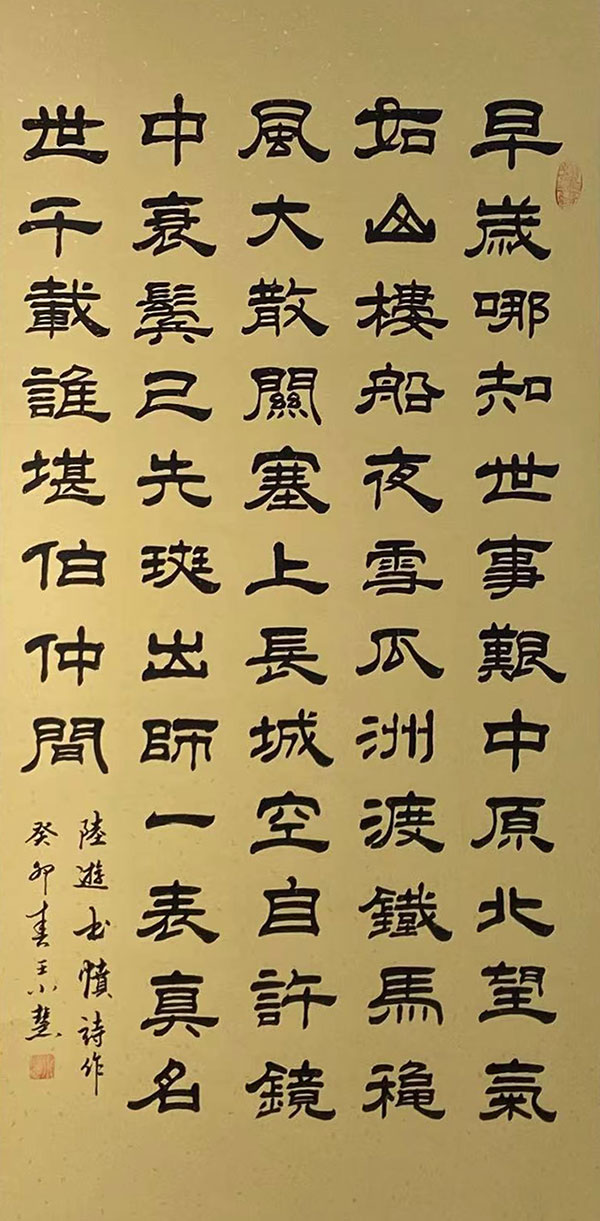 早歲哪知世事艱中原北望氣
如山樓船夜雪瓜洲渡鐵馬穐
風大散關塞上長城空自許鏡
中衰鬢已先斑出師一表真名
世千載誰堪伯仲間
陸遊書憤詩作
癸卯春王小慧